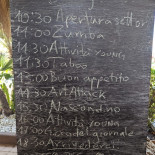 10:30 Apertura settori
11:00 Zumba
11:30 Attività young
11:30 Taboo
13:00 Buon appetito
14:30 Art Attack
15:30 Nascondino
16:00 Attività young
18:30 Arrivederci